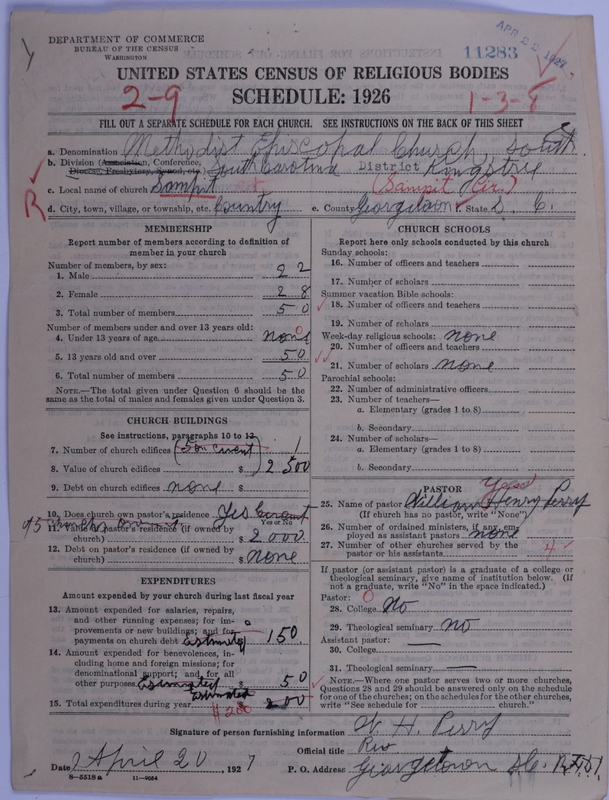 DEPARTMENT OF COMMERCE
BUREAU OF THE CENSUS
WASHINGTON
APR 22 1927
11283
UNITED STATES CENSUS OF RELIGIOUS BODIES
SCHEDULE: 1926
2-9
1-3-8
FILL OUT A SEPARATE SCHEDULE FOR EACH CHURCH. SEE INSTRUCTIONS ON THE BACK OF THIS SHEET
a. Denomination Methodist Episcopal Church, South
b. Division (Association, Conference, Diocese, Presbytery, Synod, etc.) South Carolina District Kingstree
c. Local name of church Sampit (Sampit Cir.)
R
d. City, town, village, or township, etc. Country e. County Georgetown f. State S. C.
MEMBERSHIP
Report number of members according to definition of member in your church
Number of members, by sex:
1. Male 22
2. Female 28
3. Total number of members 50
Number of members under and over 13 years old:
4. Under 13 years of age none 0
5. 13 years old and over 50
6. Total number of members 50
NOTE.—The total given under Question 6 should be the same as the total of males and females given under Question 3.
CHURCH BUILDINGS
See instructions, paragraphs 10 to 12
7. Number of church edifices 1
8. Value of church edifices $ 2500
9. Debt on church edifices none $
10. Does church own pastor's residence Yes
Yes or No
11. Value of pastor's residence (if owned by church) $ 2000
12. Debt on pastor's residence (if owned by church) $ none
EXPENDITURES
Amount expended by your church during last fiscal year
13. Amount expended for salaries, repairs, and other running expenses; for improvements or new buildings; and for payments on church debt estimated 150
14. Amount expended for benevolences, including home and foreign missions; for denominational support; and for all other purposes Estimated $ 50
estimated
15. Total expenditures during year $ 200
# 200
CHURCH SCHOOLS
Report here only schools conducted by this church
Sunday schools:
16. Number of officers and teachers
17. Number of scholars
Summer vacation Bible schools:
18. Number of officers and teachers
19. Number of scholars
Week-day religious schools: none
20. Number of officers and teachers
21. Number of scholars none
Parochial schools:
22. Number of administrative officers
23. Number of teachers—
a. Elementary (grades 1 to 8)
b. Secondary
24. Number of scholars—
a. Elementary (grades 1 to 8)
b. Secondary
PASTOR
25. Name of pastor William Henry Perry
(If church has no pastor, write "None")
26. Number of ordained ministers, if any, employed as assistant pastors none
27. Number of other churches served by the pastor or his assistants 4
If pastor (or assistant pastor) is a graduate of a college or theological seminary, give name of institution below. (If not a graduate, write "No" in the space indicated.)
Pastor: 0
28. College No
29. Theological seminary No
Assistant pastor:
30. College —
31. Theological seminary —
NOTE.—Where one pastor serves two or more churches, Questions 28 and 29 should be answered only on the schedule for one of the churches; on the schedules for the other churches, write "See schedule for church."
Signature of person furnishing information W. H. Perry
Official title Rev
Date April 20, 1927 P. O. Address Georgetown S.C. R.F.D.1
8-5518 a 11-9064